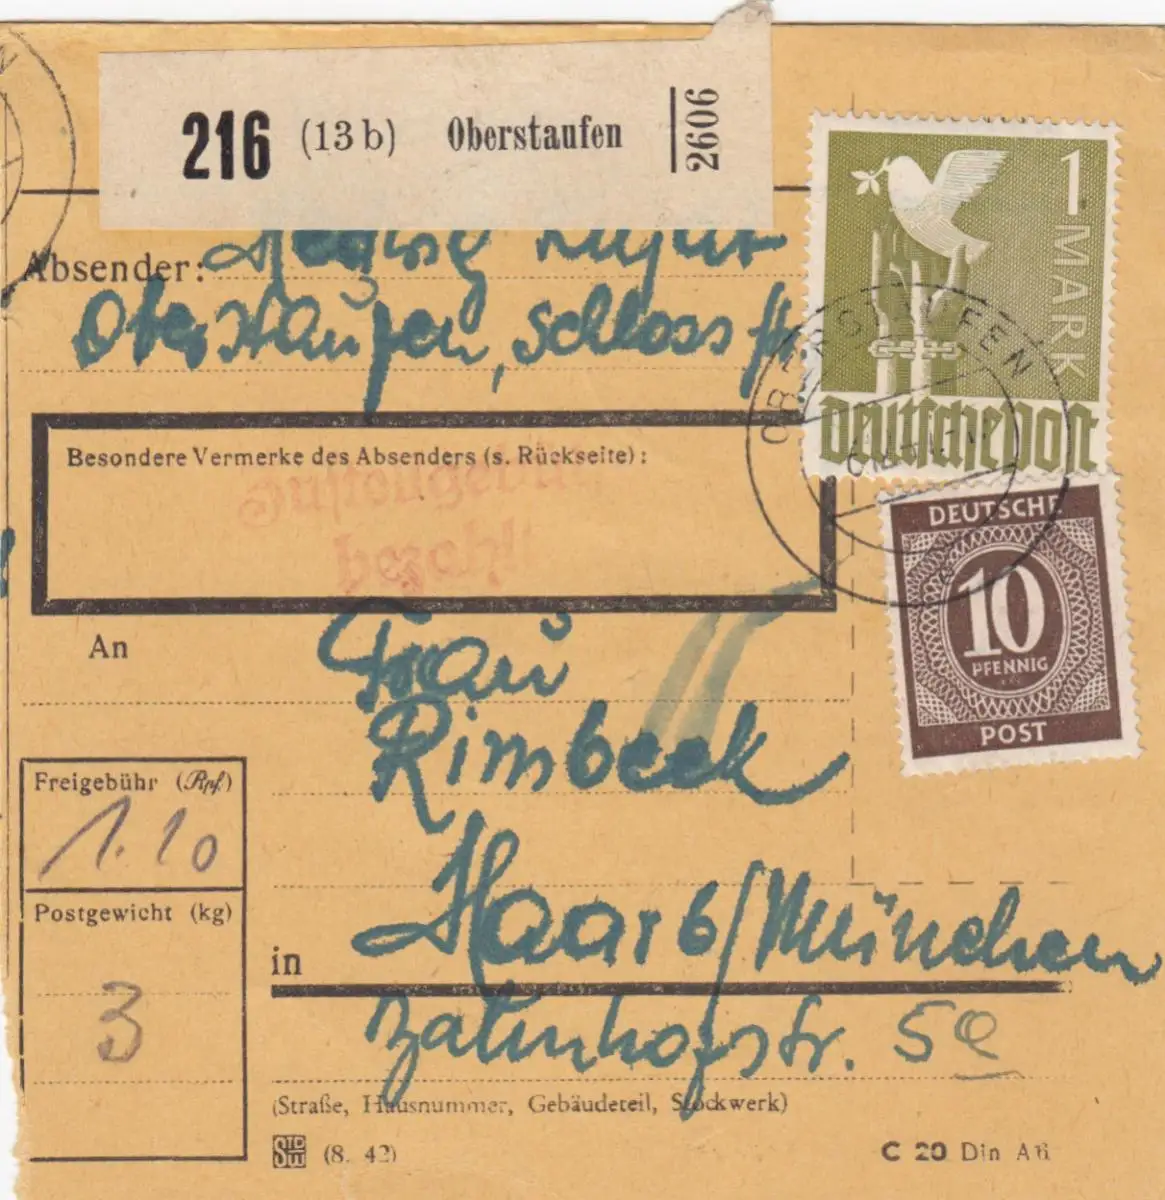 216 (13b) Oberstaufen 2606
1 MARK
Deutsche Post
Absender: Hedwig
Oberstaufen, Schloss
OBERSTAUFEN
Besondere Vermerke des Absenders (s. Rückseite):
Zustellgebühr
bezahlt
DEUTSCHE
10
PFENNIG
POST
An Frau
Rimbeck
Freigebühr (Rpf.)
1.10
Postgewicht (kg)
3
in Haar b/München
Bahnhofstr. 5
(Straße, Hausnummer, Gebäudeteil, Stockwerk)
(8. 42)
C 20 Din A6